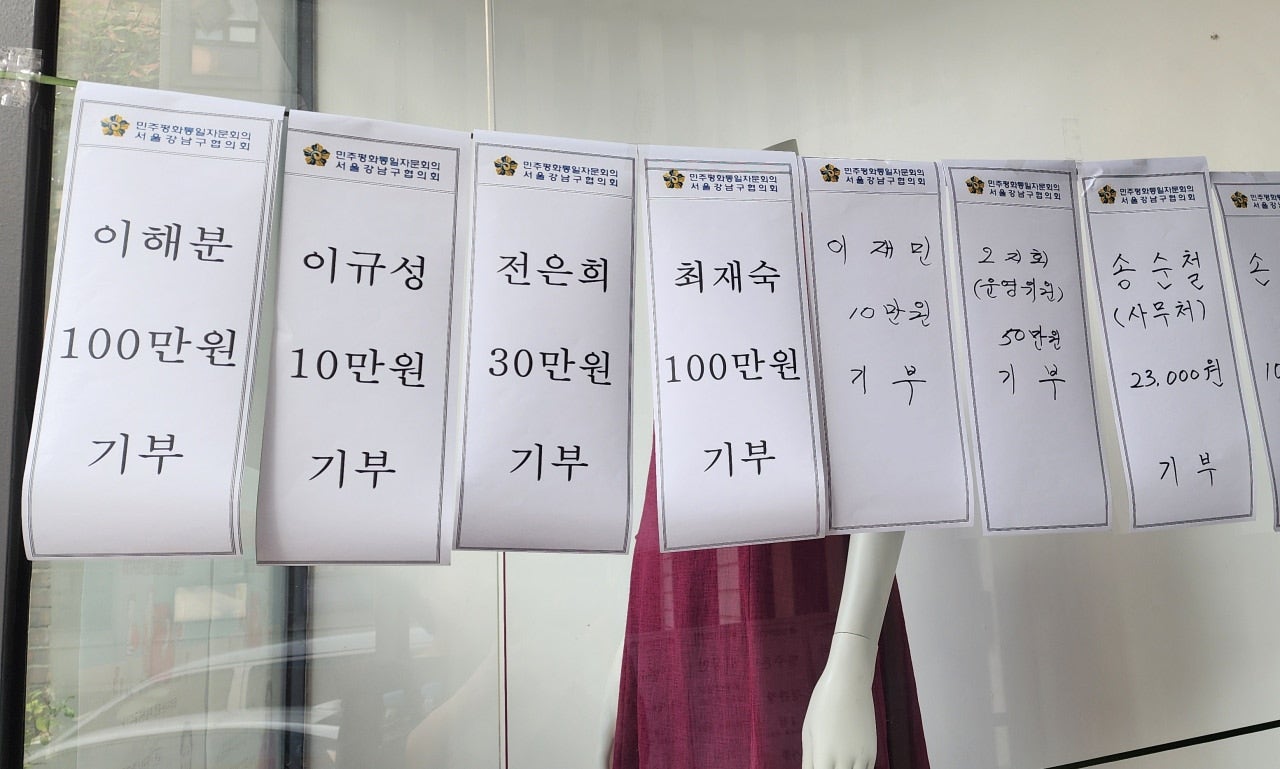 민주평화통일자문회의
서울강남구협의회
이해분
100만원
기부
민주평화통일자문회의
서울강남구협의회
이규성
10만원
기부
민주평화통일자문회의
서울강남구협의회
전은희
30만원
기부
민주평화통일자문회의
서울강남구협의회
최재숙
100만원
기부
민주평화통일자문회의
서울강남구협의회
이재민
10만원
기부
민주평화통일자문회의
서울강남구협의회
2지회
(운영위원)
50만원
기부
민주평화통일자문회의
서울강남구협의회
송순철
(사무처)
23,000원
기부
민주
서울
손
10